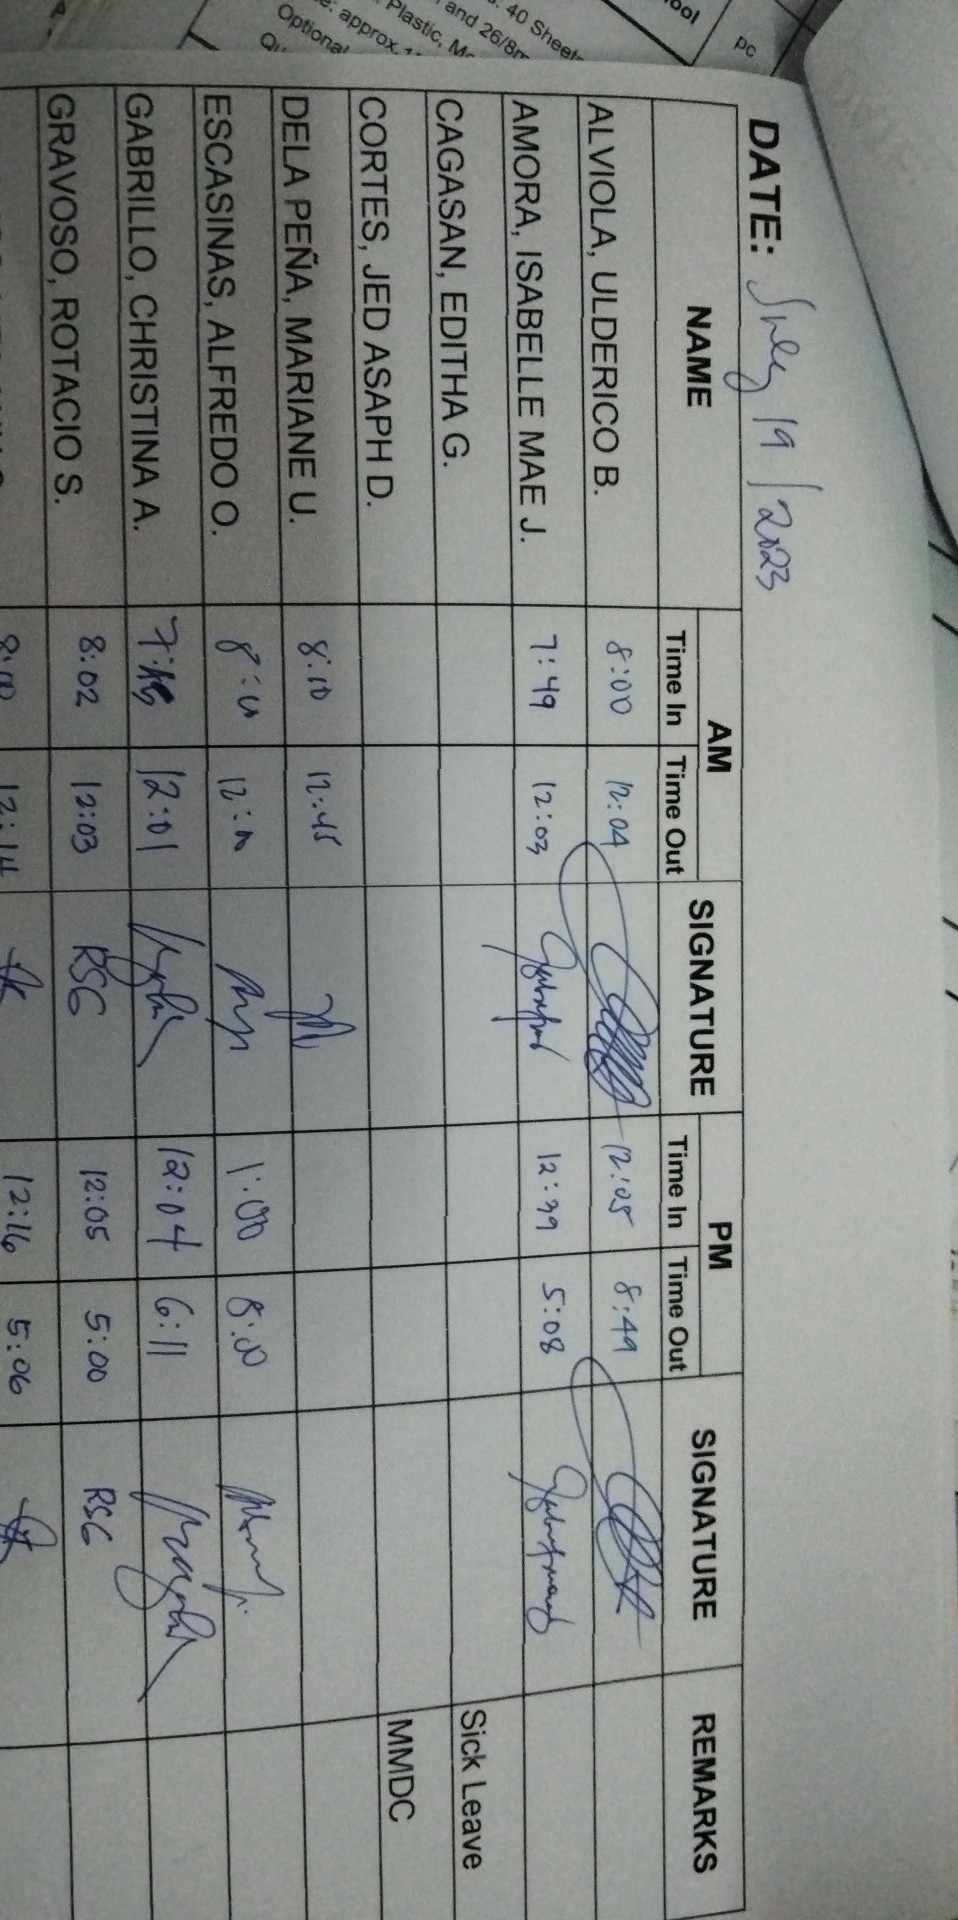 ool
pc
: 40 Sheets
and 26/8m
Plastic,
approx.
Optional
DATE: July 19, 2023
NAME AM SIGNATURE PM SIGNATURE REMARKS
Time In Time Out Time In Time Out
ALVIOLA, ULDERICO B. 8:00 12:04 12:05 8:49
AMORA, ISABELLE MAE J. 7:49 12:03 12:39 5:08
CAGASAN, EDITHA G. Sick Leave
CORTES, JED ASAPH D. MMDC
DELA PEÑA, MARIANE U. 8:10 12:45
ESCASINAS, ALFREDO O. 1:00 8:00
GABRILLO, CHRISTINA A. 12:01 12:04 6:11
GRAVOSO, ROTACIO S. 8:02 12:03 RSG 12:05 5:00 RSG
8:00 12:14 12:16 5:06